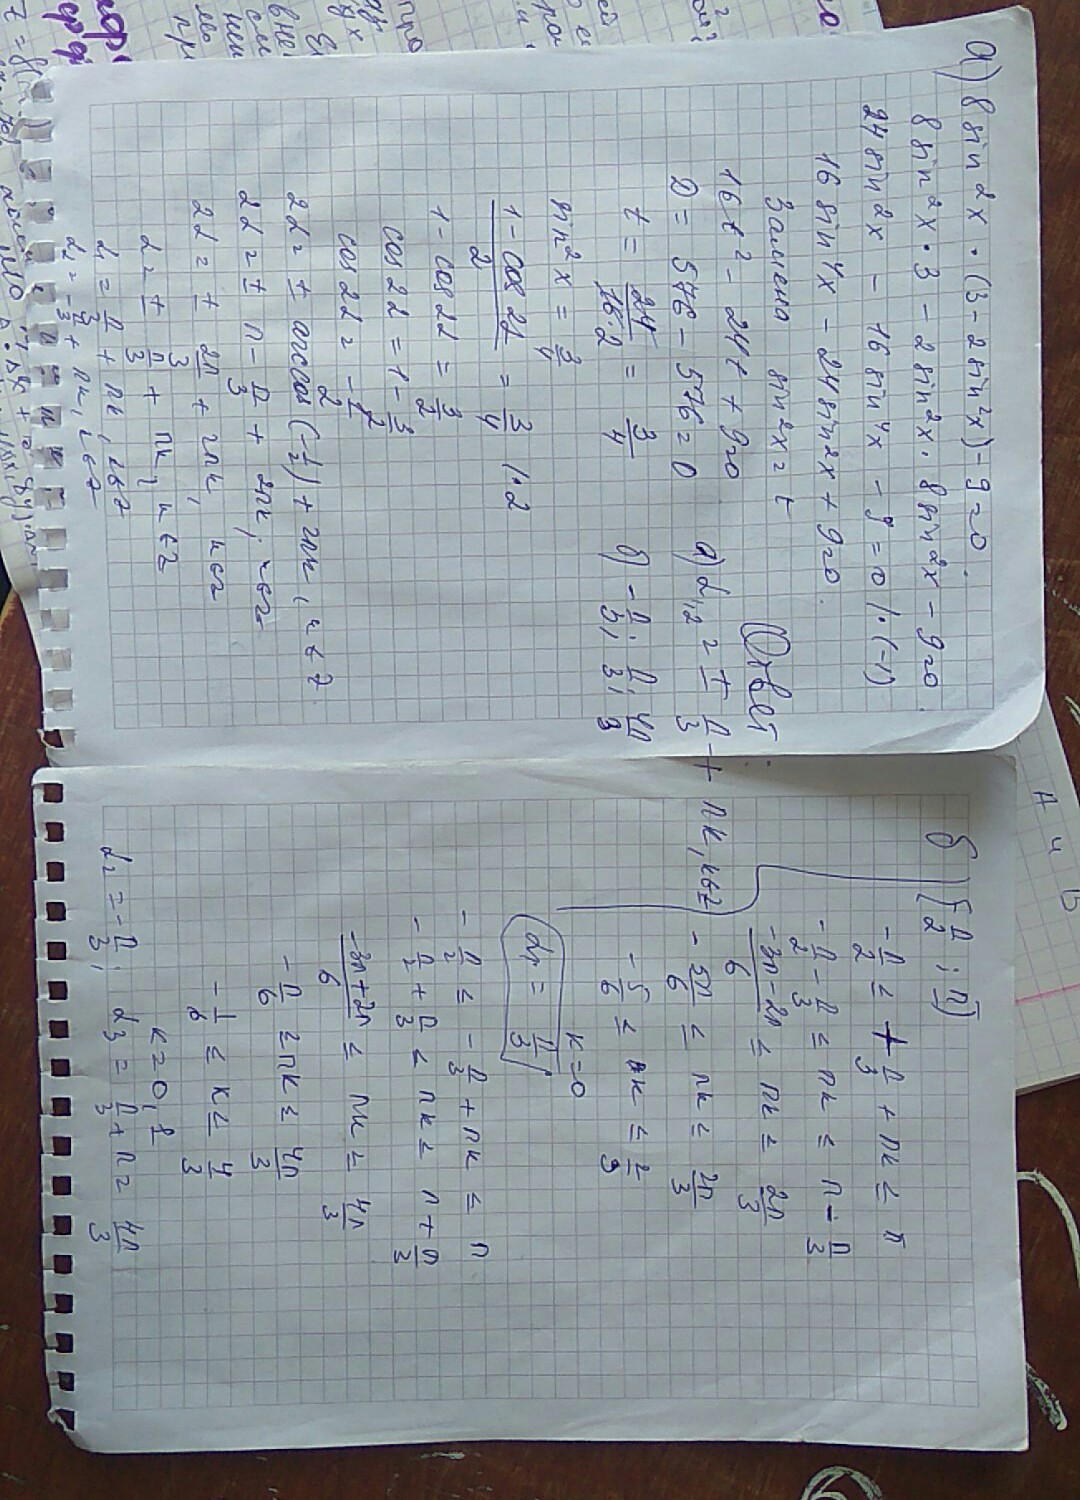 а) 8 sin²x · (3 - 2 sin²x) - 9 = 0.
8 sin²x · 3 - 2 sin²x · 8 sin²x - 9 = 0
24 sin²x - 16 sin⁴x - 9 = 0 / · (-1)
16 sin⁴x - 24 sin²x + 9 = 0.
Замена sin²x = t
16t² - 24t + 9 = 0
D = 576 - 576 = 0
t = 24/16·2 = 3/4
sin²x = 3/4
1 - cos 2d / 2 = 3/4 / · 2
1 - cos 2d = 3/2
cos 2d = 1 - 3/2
cos 2d = - 1/2
2d = ± arccos (-1/2) + 2πk, k ∈ z
2d = ± π - π/3 + 2πk, k ∈ z
2d = ± 2π/3 + 2πk, k ∈ z
d = ± π/3 + πk, k ∈ z
d₁ = π/3 + πk, k ∈ z
d₂ = - π/3 + πk, k ∈ z
Ответ:
а) d₁,₂ = ± π/3 + πk, k ∈ z
б) - π/3; π/3; 4π/3
б) [π/2; π]
- π/2 ≤ + π/3 + πk ≤ π
- π/2 - π/3 ≤ πk ≤ π - π/3
-3π - 2π / 6 ≤ πk ≤ 2π/3
- 5π/6 ≤ πk ≤ 2π/3
- 5/6 ≤ k ≤ 2/3
k = 0
d₁ = π/3
- π/2 ≤ - π/3 + πk ≤ π
- π/2 + π/3 ≤ πk ≤ π + π/3
-3π + 2π / 6 ≤ πk ≤ 4π/3
- π/6 ≤ πk ≤ 4π/3
- 1/6 ≤ k ≤ 4/3
k = 0, 1
d₂ = - π/3; d₃ = π/3 + π = 4π/3